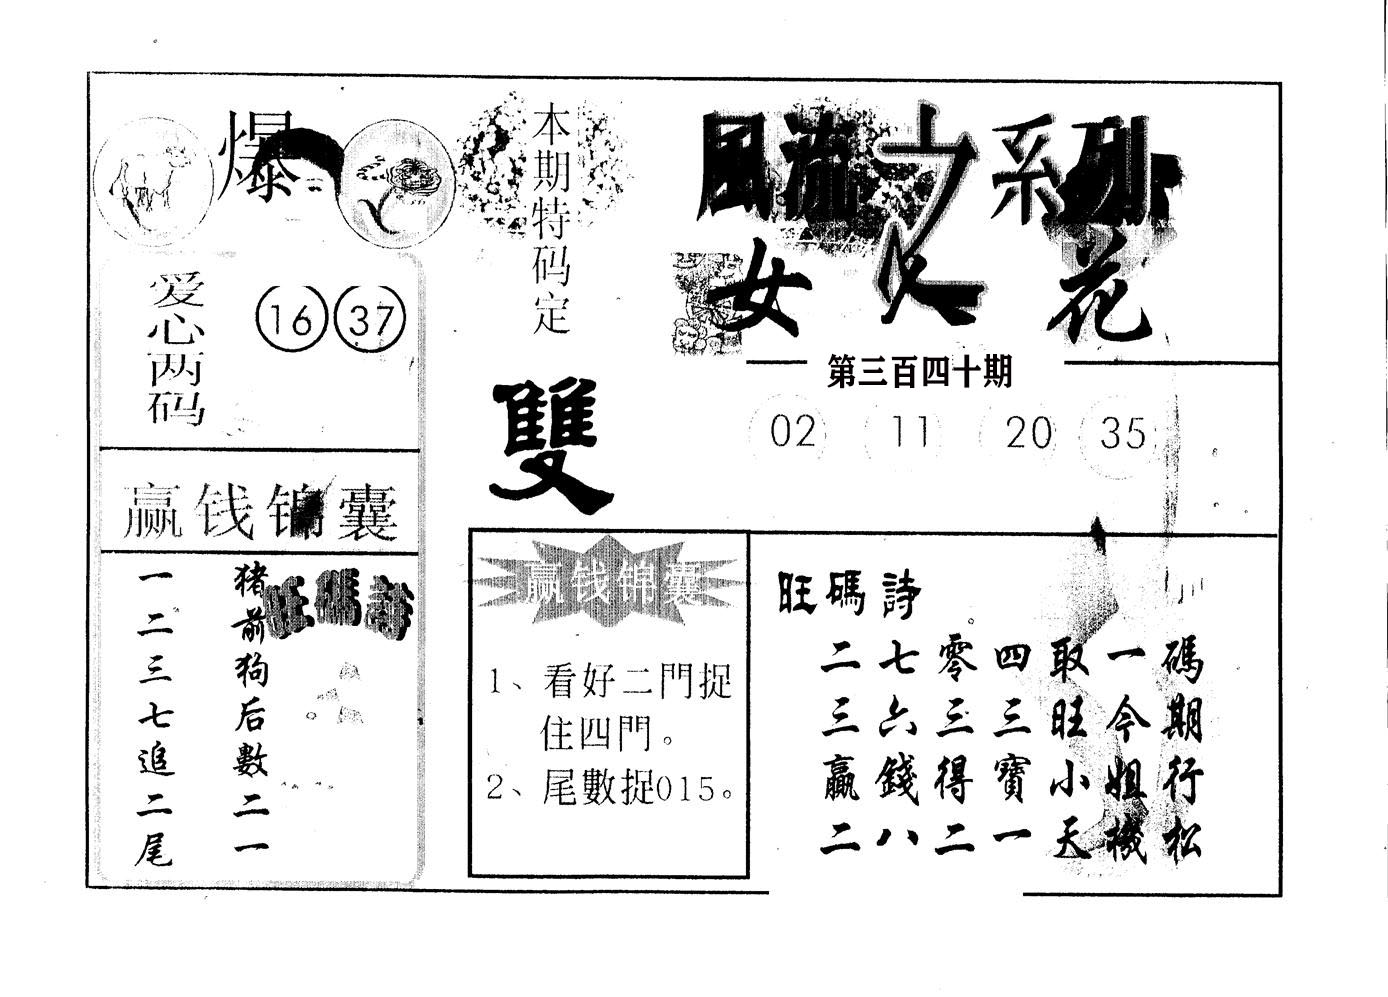 爆
本期特码定
雙
風流之系列
女人花
第三百四十期
02 11 20 35
爱心两码
16 37
赢钱锦囊
旺碼詩
猪前狗后數二一
一二三七追二尾
赢钱锦囊
1、看好二門捉
住四門。
2、尾數捉015。
旺碼詩
二七零四取一碼
三六三三旺今期
贏錢得寶小姐行
二八二一天機松